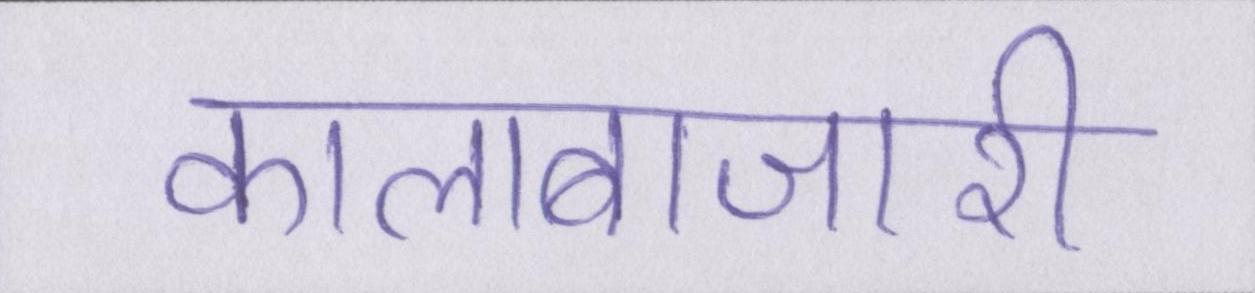 कालाबाजारी